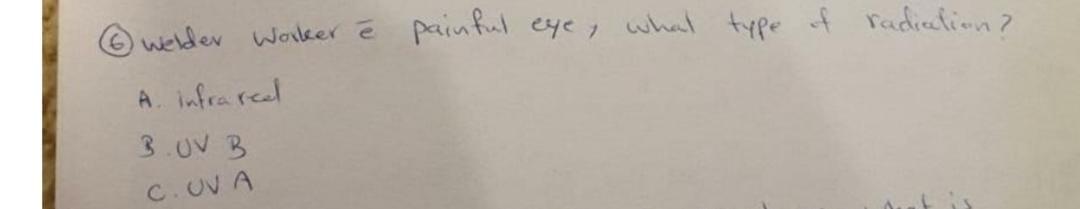 ⑥ welder worker ē painful eye, what type of radiation?
A. infrared
B. UV B
C. UV A